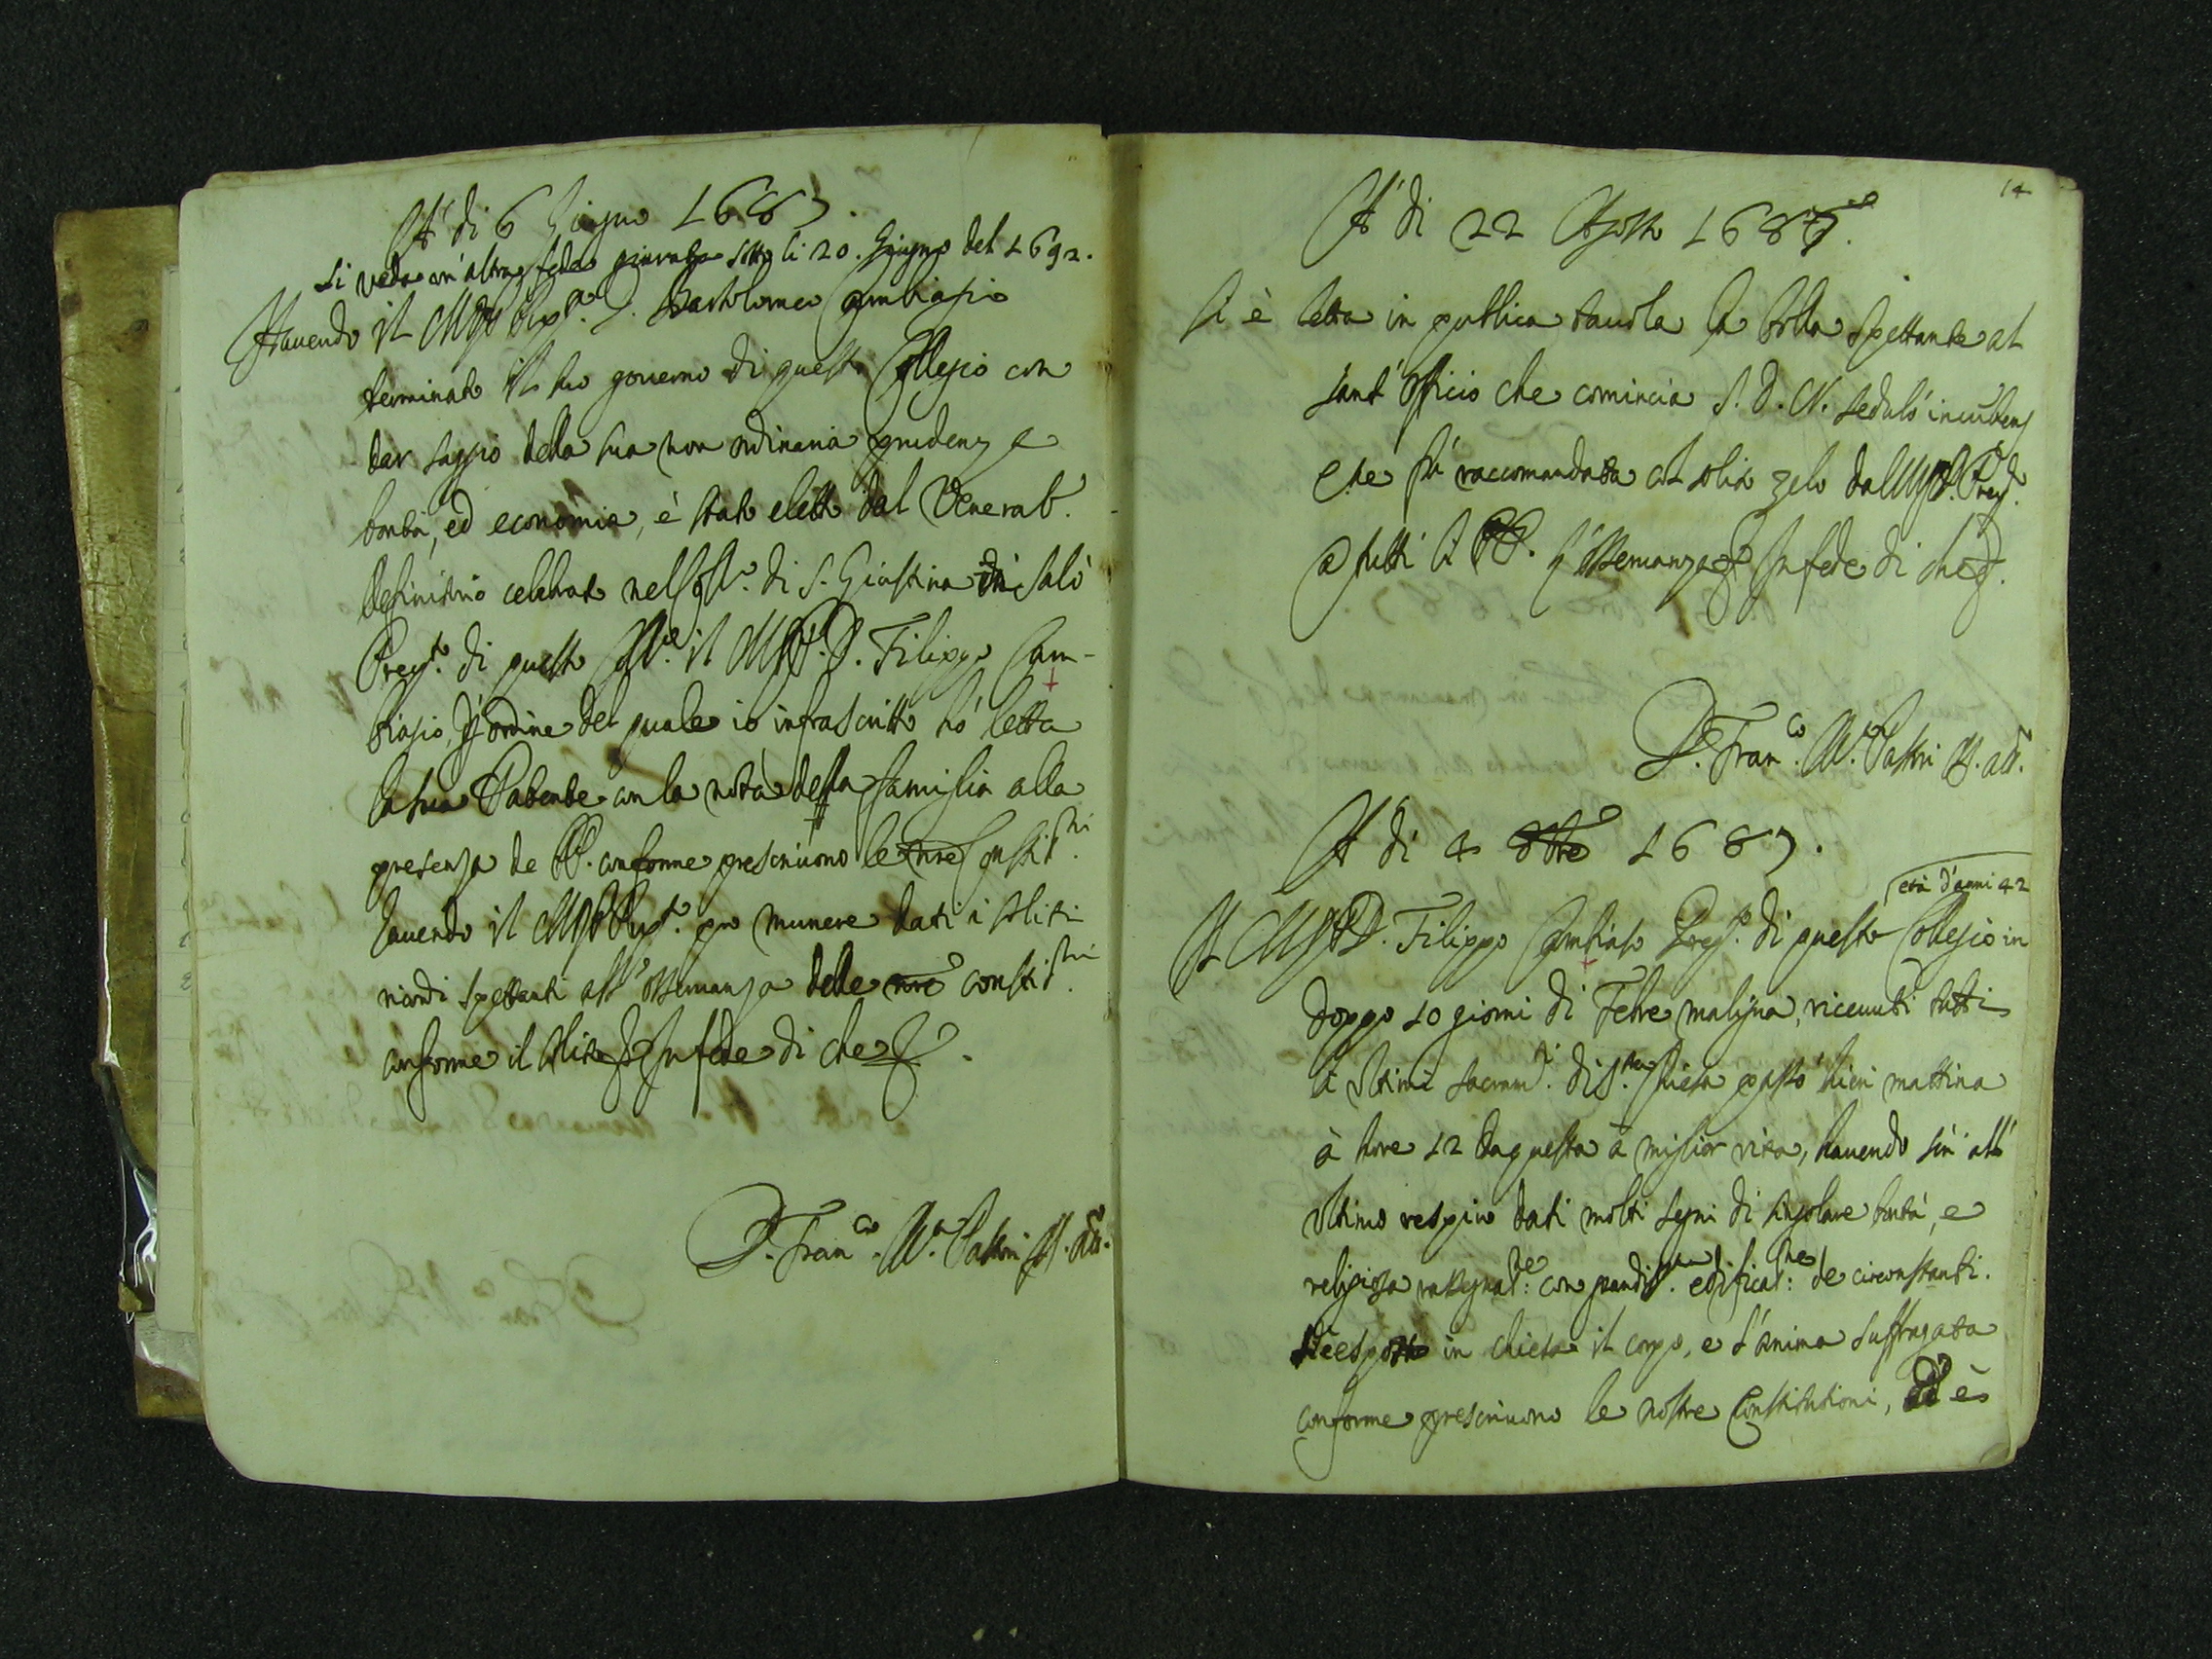 A' di 6 Giugno 1687.
Si veda un'altra fede giurata sotto li 20. Giugno del 1692.
Havendo il M.R.P. Prep.to D. Bartolomeo Cambiasio
terminato il suo governo di questo Collegio con
dar saggio della sua non ordinaria prudenza
bontà, ed economia, è stato eletto dal Venerab.
definitorio celebrato nel Coll.o di S. Giustina di Salò
Prep.to di questo Coll.o il M.R.P. D. Filippo Cam-
biasio, p ordine del quale io infrascritto hò letta
la sua Patente con la nota della famiglia alla
presenza de PP. conforme prescrivono le nre Constit.ni
havendo il M.R.P. Prep.to pro munere dati i soliti
ricordi spettanti all'osservanza delle nre constit.ni
conforme il solito In fede di che
D. Fran.co M.a Pastori att.
14
A' di 22 Agosto 1687.
Si è letta in publica tavola la bolla spettante al
sant'Officio che comincia S. D. N. sedulò incumbens
che fù raccomandata col solito zelo dal M.R.P. Prep.to
a tutti li PP. l'osservanza In fede di che
D. Fran.co M.a Pastori att.
A di 4 8bre 1687.
età d'anni 42
Il M.R.P. D. Filippo Cambiaso Prep.to di questo Collegio in
doppo 10 giorni di Febre maligna, ricevuti tutti
li ultimi sacram.ti di S.ta Chiesa passò hieri mattina
à hore 12 da questa à miglior vita, havendo sin all'
ultimo respiro dati molti segni di singolare bontà, e
religiosa rassegnat.ne con grandiss.ma edificat.ne de circonstanti.
Si è esposto in chiesa il corpo, e l'anima suffragata
conforme prescrivono le nostre Constitutioni, Ed è